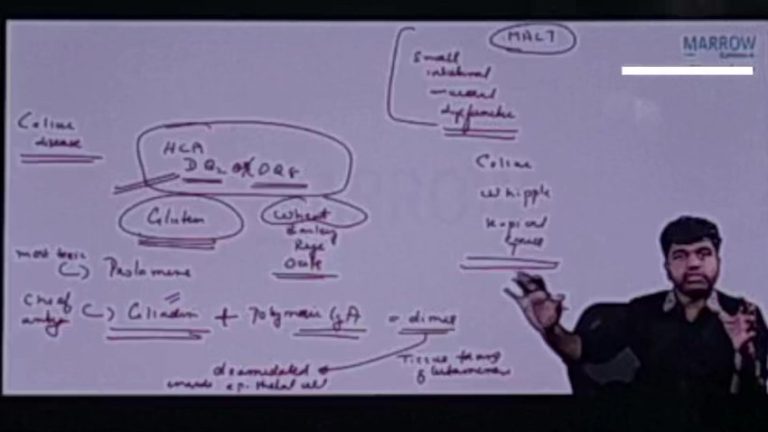 MALT
MARROW
Small
intestinal
mucosal
dysfunction
Coeliac
disease
HLA
DQ2 or DQ8
Coeliac
Whipple
Tropical
Sprue
Gluten
Wheat
Barley
Rye
Oats
most toxic
Prolamine
Chief
antig
Gliadin + Polymeric IgA = dimer
deamidated
Tissue transg
glutaminase